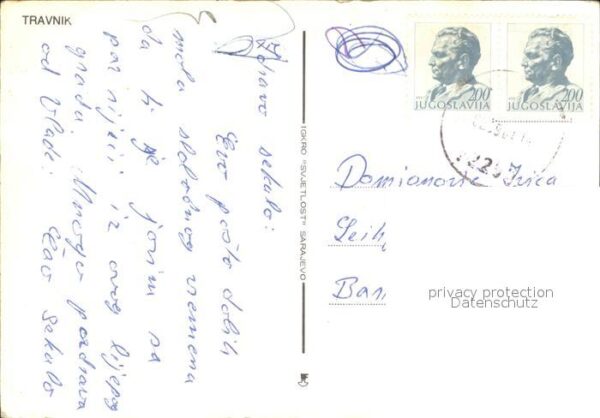 TRAVNIK
Zdravo sekulo!
Evo pošto dobih
malo slobodnog vremena
da ti se javim sa
par riječi iz ovog lijepog
grada. Mnogo pozdrava
od Vlade. Ćao sekulo
IGKRO "SVJETLOST" SARAJEVO
200
JUGOSLAVIJA
200
JUGOSLAVIJA
Damjanović Ivica
Ban
privacy protection
Datenschutz